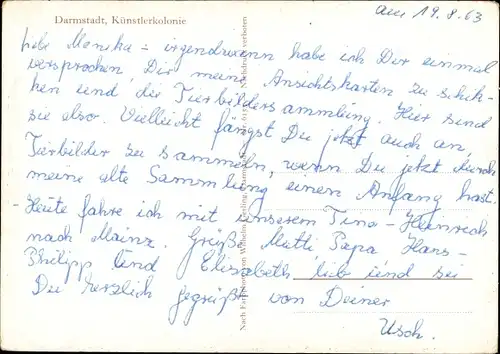 Darmstadt, Künstlerkolonie
am 19.8.63
liebe Monika – irgendwann habe ich Dir einmal
versprochen, Dir meine Ansichtskarten zu schik-
ken und die Tierbildersammlung. Hier sind
sie also. Vielleicht fängst Du jetzt auch an,
Tierbilder zu sammeln, wenn Du jetzt durch
meine alte Sammlung einen Anfang hast.
– Heute fahre ich mit unserem Tino – Heinrich
nach Mainz. Grüße Mutti, Papa Hans –
Philipp und Elisabeth lieb und sei
Du herzlich gegrüßt von Deiner
Usch.
Nachdruck verboten